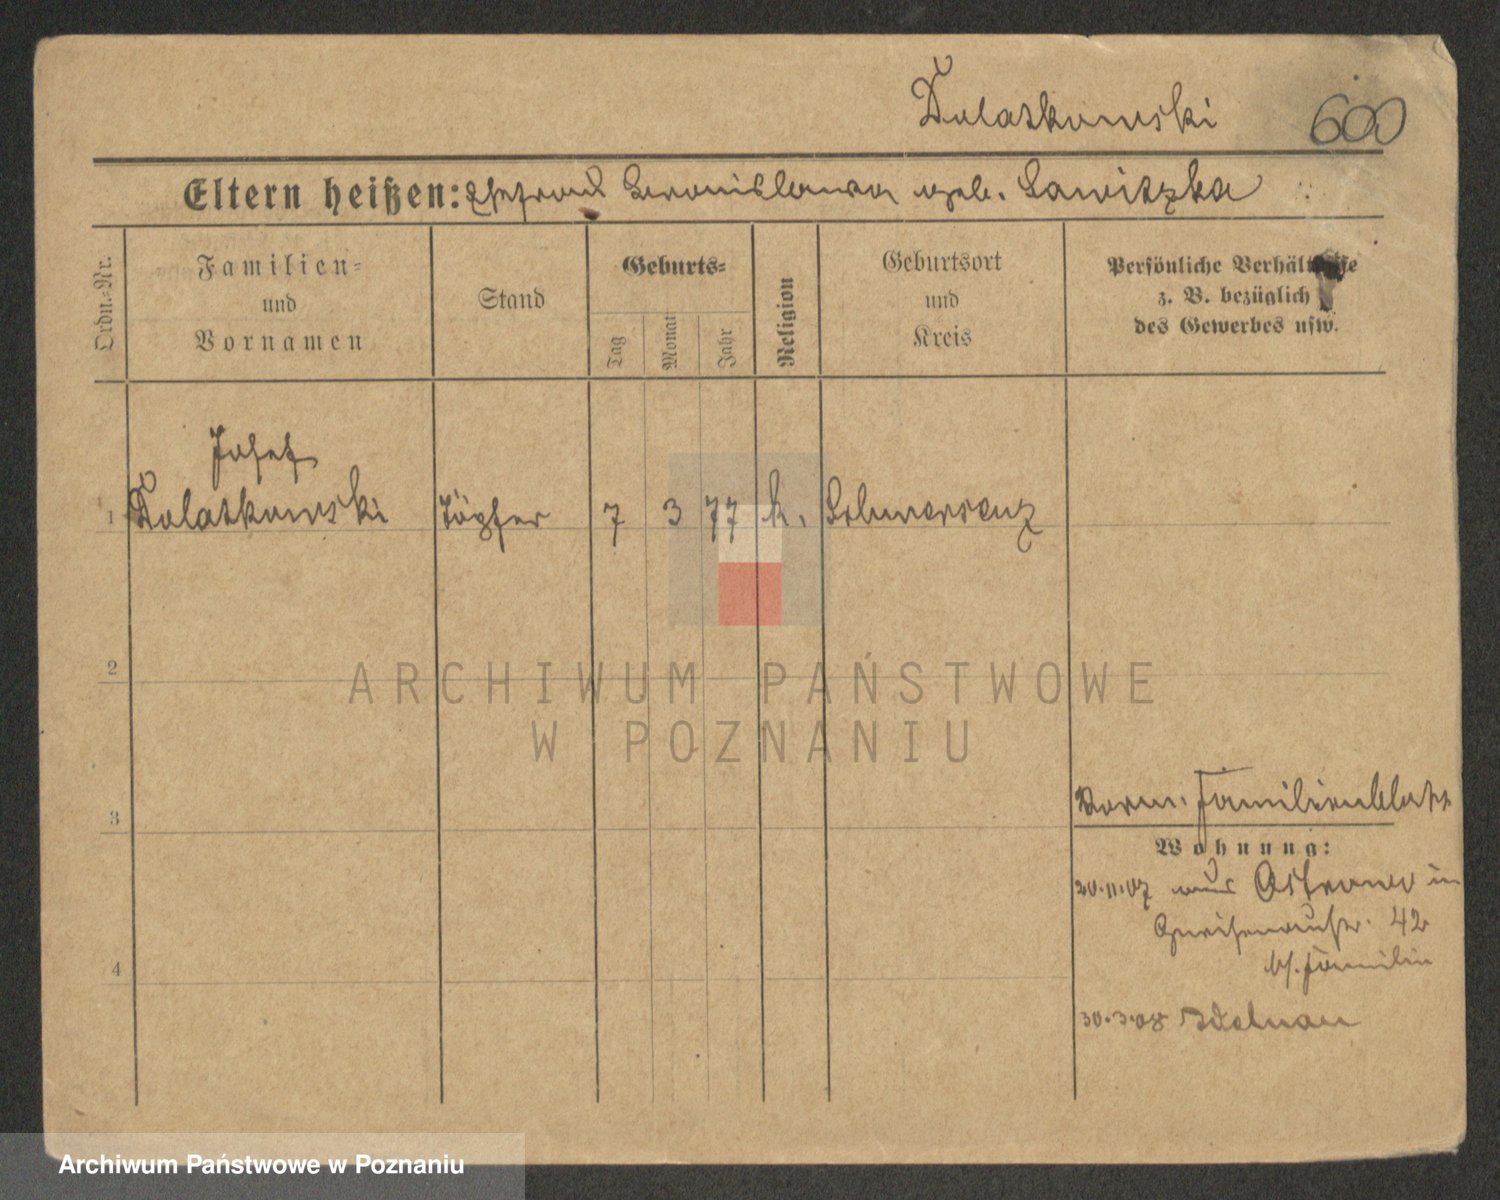 Dolatkowski 600
Eltern heißen: Ehefrau Bronislawa geb. Sawitzka
Ordn.-Nr.
Familien-
und
Vornamen
Stand
Geburts-
Tag
Monat
Jahr
Religion
Geburtsort
und
Kreis
Persönliche Verhältnisse
z. B. bezüglich
des Gewerbes usw.
Josef
1 Dolatkowski Töpfer 7 3 77 k. Schwersenz
2
3
4
Vorm. Familienblatt
Wohnung:
20.11.07 aus Ostrowo in
Gneisenaustr. 42
b/. Familie
30.3.08
ARCHIWUM PAŃSTWOWE
W POZNANIU
Archiwum Państwowe w Poznaniu